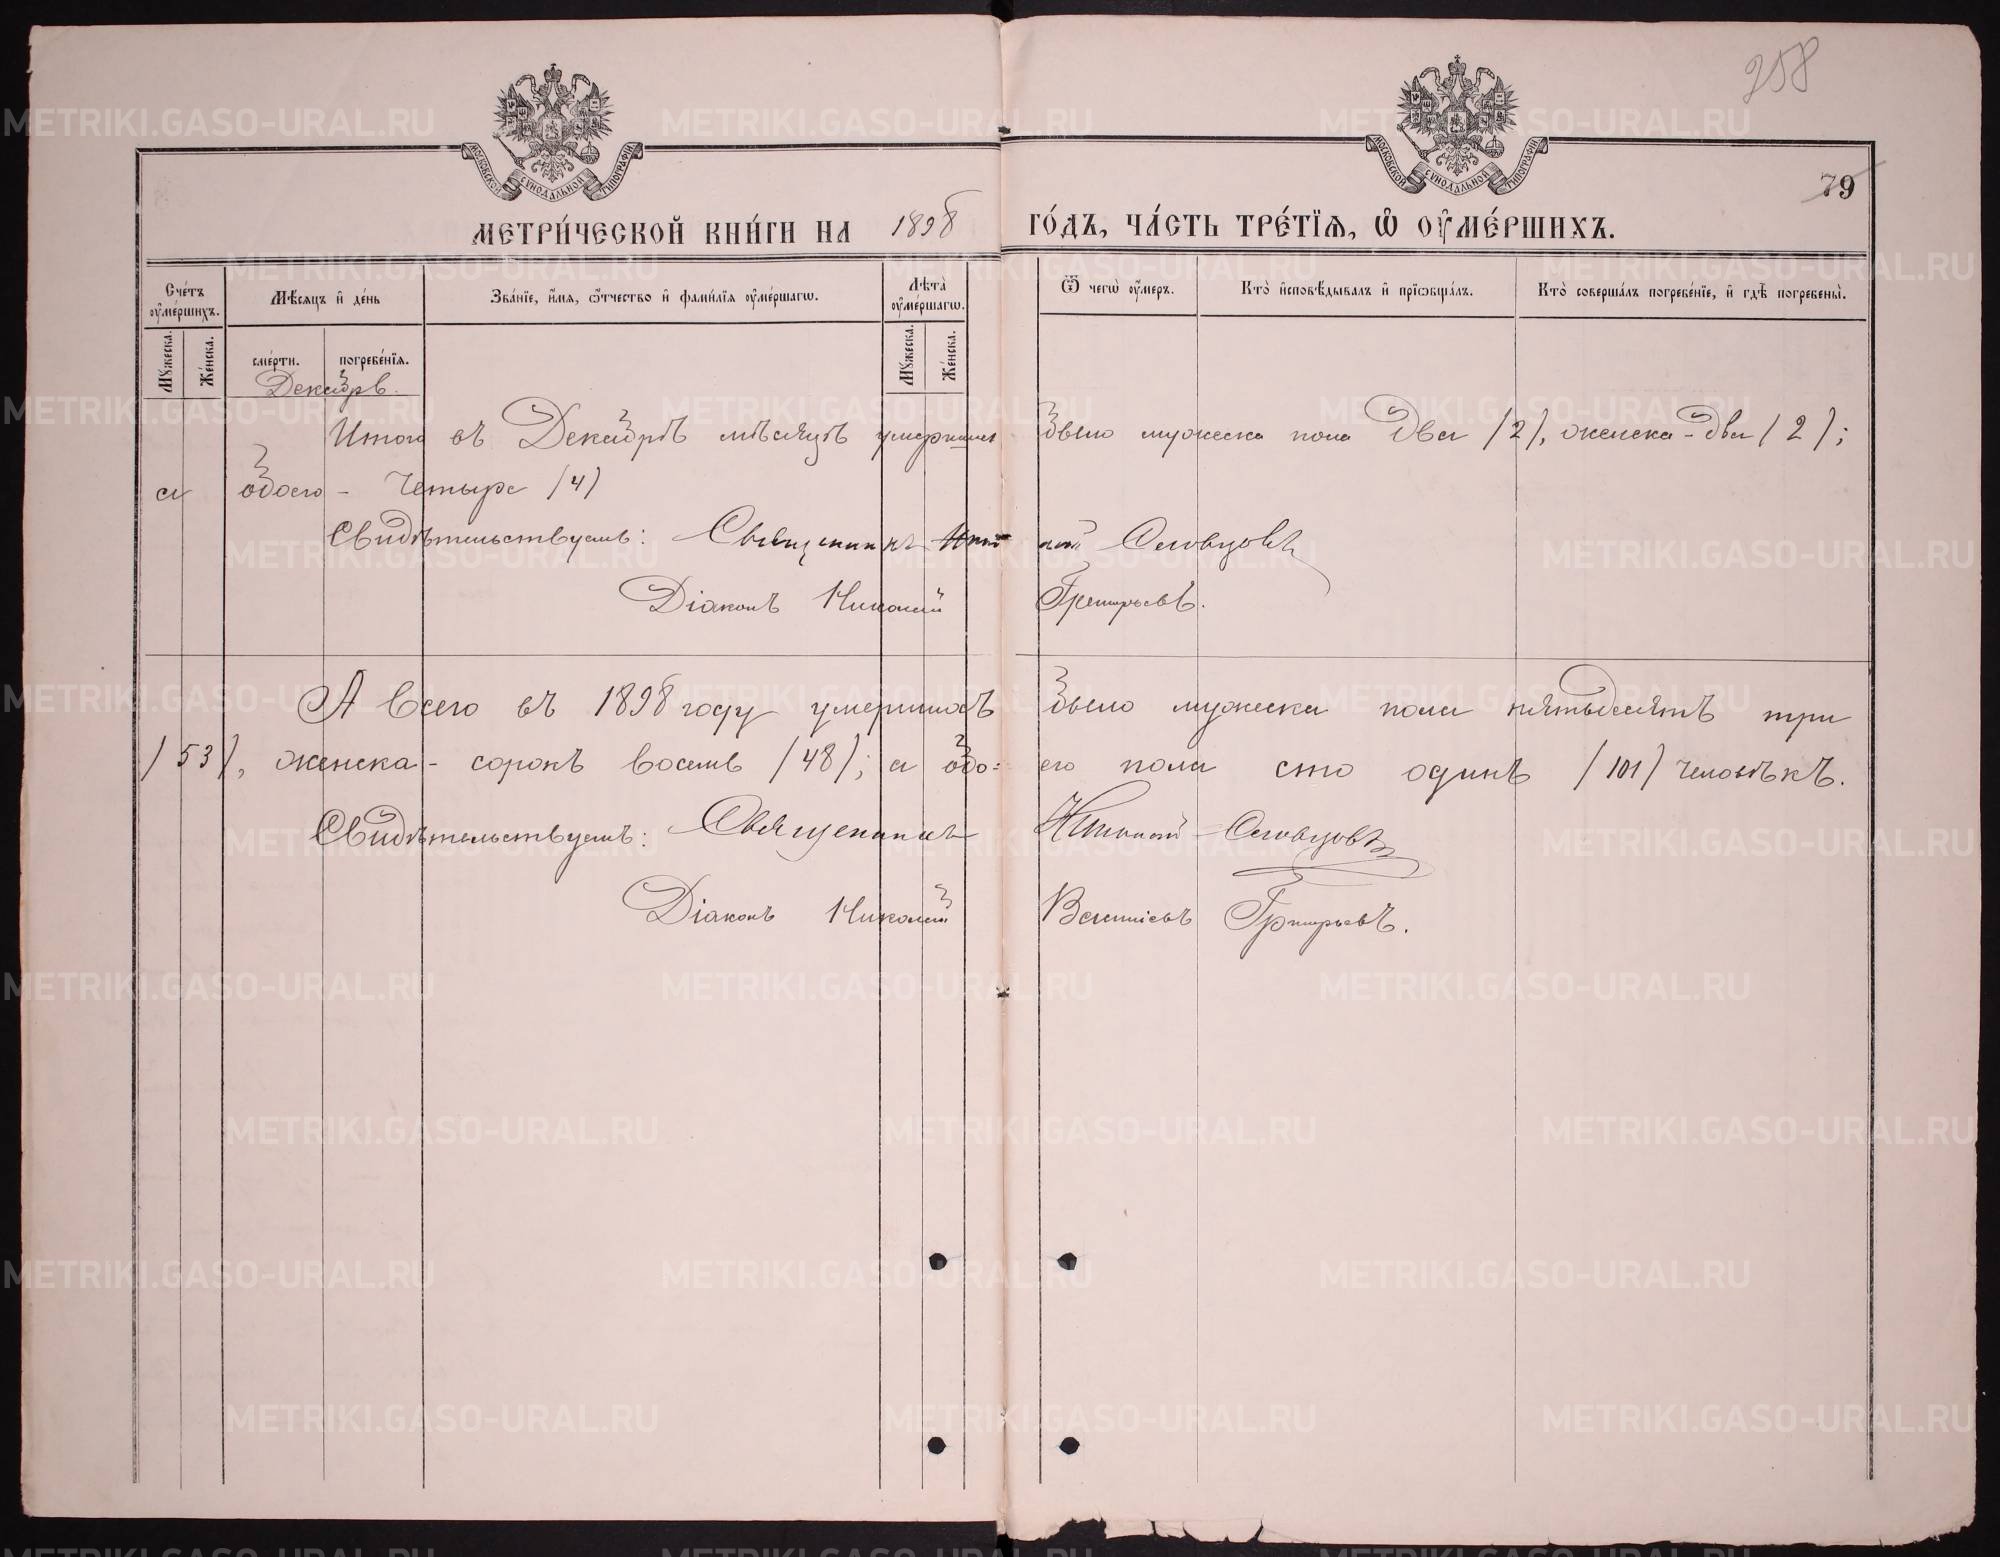 258
79
МОСКОВСКОЙ СУНОДАЛЬНОЙ ТИПОГРАФІИ
МОСКОВСКОЙ СУНОДАЛЬНОЙ ТИПОГРАФІИ
МЕТРИ́ЧЕСКОЙ КНИ́ГИ НА 1898 ГО́ДЪ, ЧА́СТЬ ТРЕ́ТІѦ, Ѡ҆ ОУ҆МЕ́РШИХЪ.
Сче́тъ оу҆ме́ршихъ.
Мѣ́сяцъ и҆ де́нь
Зва́нїе, и҆́мѧ, ѻ҆́тчество и҆ фами́лїѧ оу҆ме́ршагѡ.
Лѣ́та оу҆ме́ршагѡ.
Ѿ чегѡ̀ оу҆́меръ.
Кто̀ и҆сповѣ́дывалъ и҆ прїѡбща́лъ.
Кто̀ соверша́лъ погребе́нїе, и҆ гдѣ̀ погребены̀.
Мꙋ́жеска.
Же́нска.
сме́рти.
погребе́нїѧ.
Мꙋ́жеска.
Же́нска.
Декабрь.
Итого въ Декабрѣ мѣсяцѣ умершихъ было мужеска пола два /2/, женска - два /2/;
а обоего - четыре /4/
Свидѣтельствуемъ: Священникъ Николай Словцовъ
Діаконъ Николай Григорьевъ.
А всего въ 1898 году умершихъ было мужеска пола пятьдесятъ три
/53/, женска - сорокъ восемь /48/; а обо=его пола сто одинъ /101/ человѣкъ.
Свидѣтельствуемъ: Священникъ Николай Словцовъ
Діаконъ Николай Григорьевъ.
METRIKI.GASO-URAL.RU